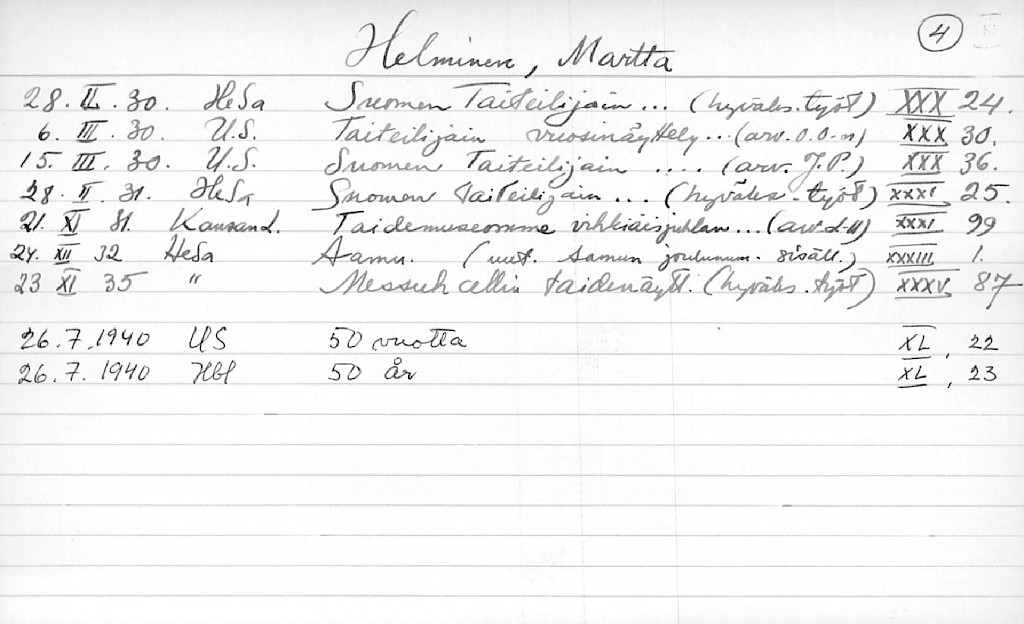 4
Helminen, Martta
28. II. 30. HeSa Suomen Taiteilijain ... (hyväks. työt) XXX 24.
6. III. 30. U.S. Taiteilijain vuosinäyttely... (arv. O.O-n) XXX 30.
15. III. 30. U.S. Suomen Taiteilijain .... (arv. J.P.) XXX 36.
28. II. 31. HeSa Suomen Taiteilijain ... (hyväks. työt) XXXI 25.
21. XI 31. Kansan L. Taidemuseomme vihkiäisjuhlan... (arv. L-ll) XXXI 99
24. XII 32 HeSa Aamu. ( Aamun joulunum. sisält.) XXXIII 1.
23 XI 35 " Messuhallin taidenäytt. (hyväks. työt) XXXV 87
26.7.1940 US 50 vuotta XL, 22
26.7.1940 Hbl 50 år XL, 23